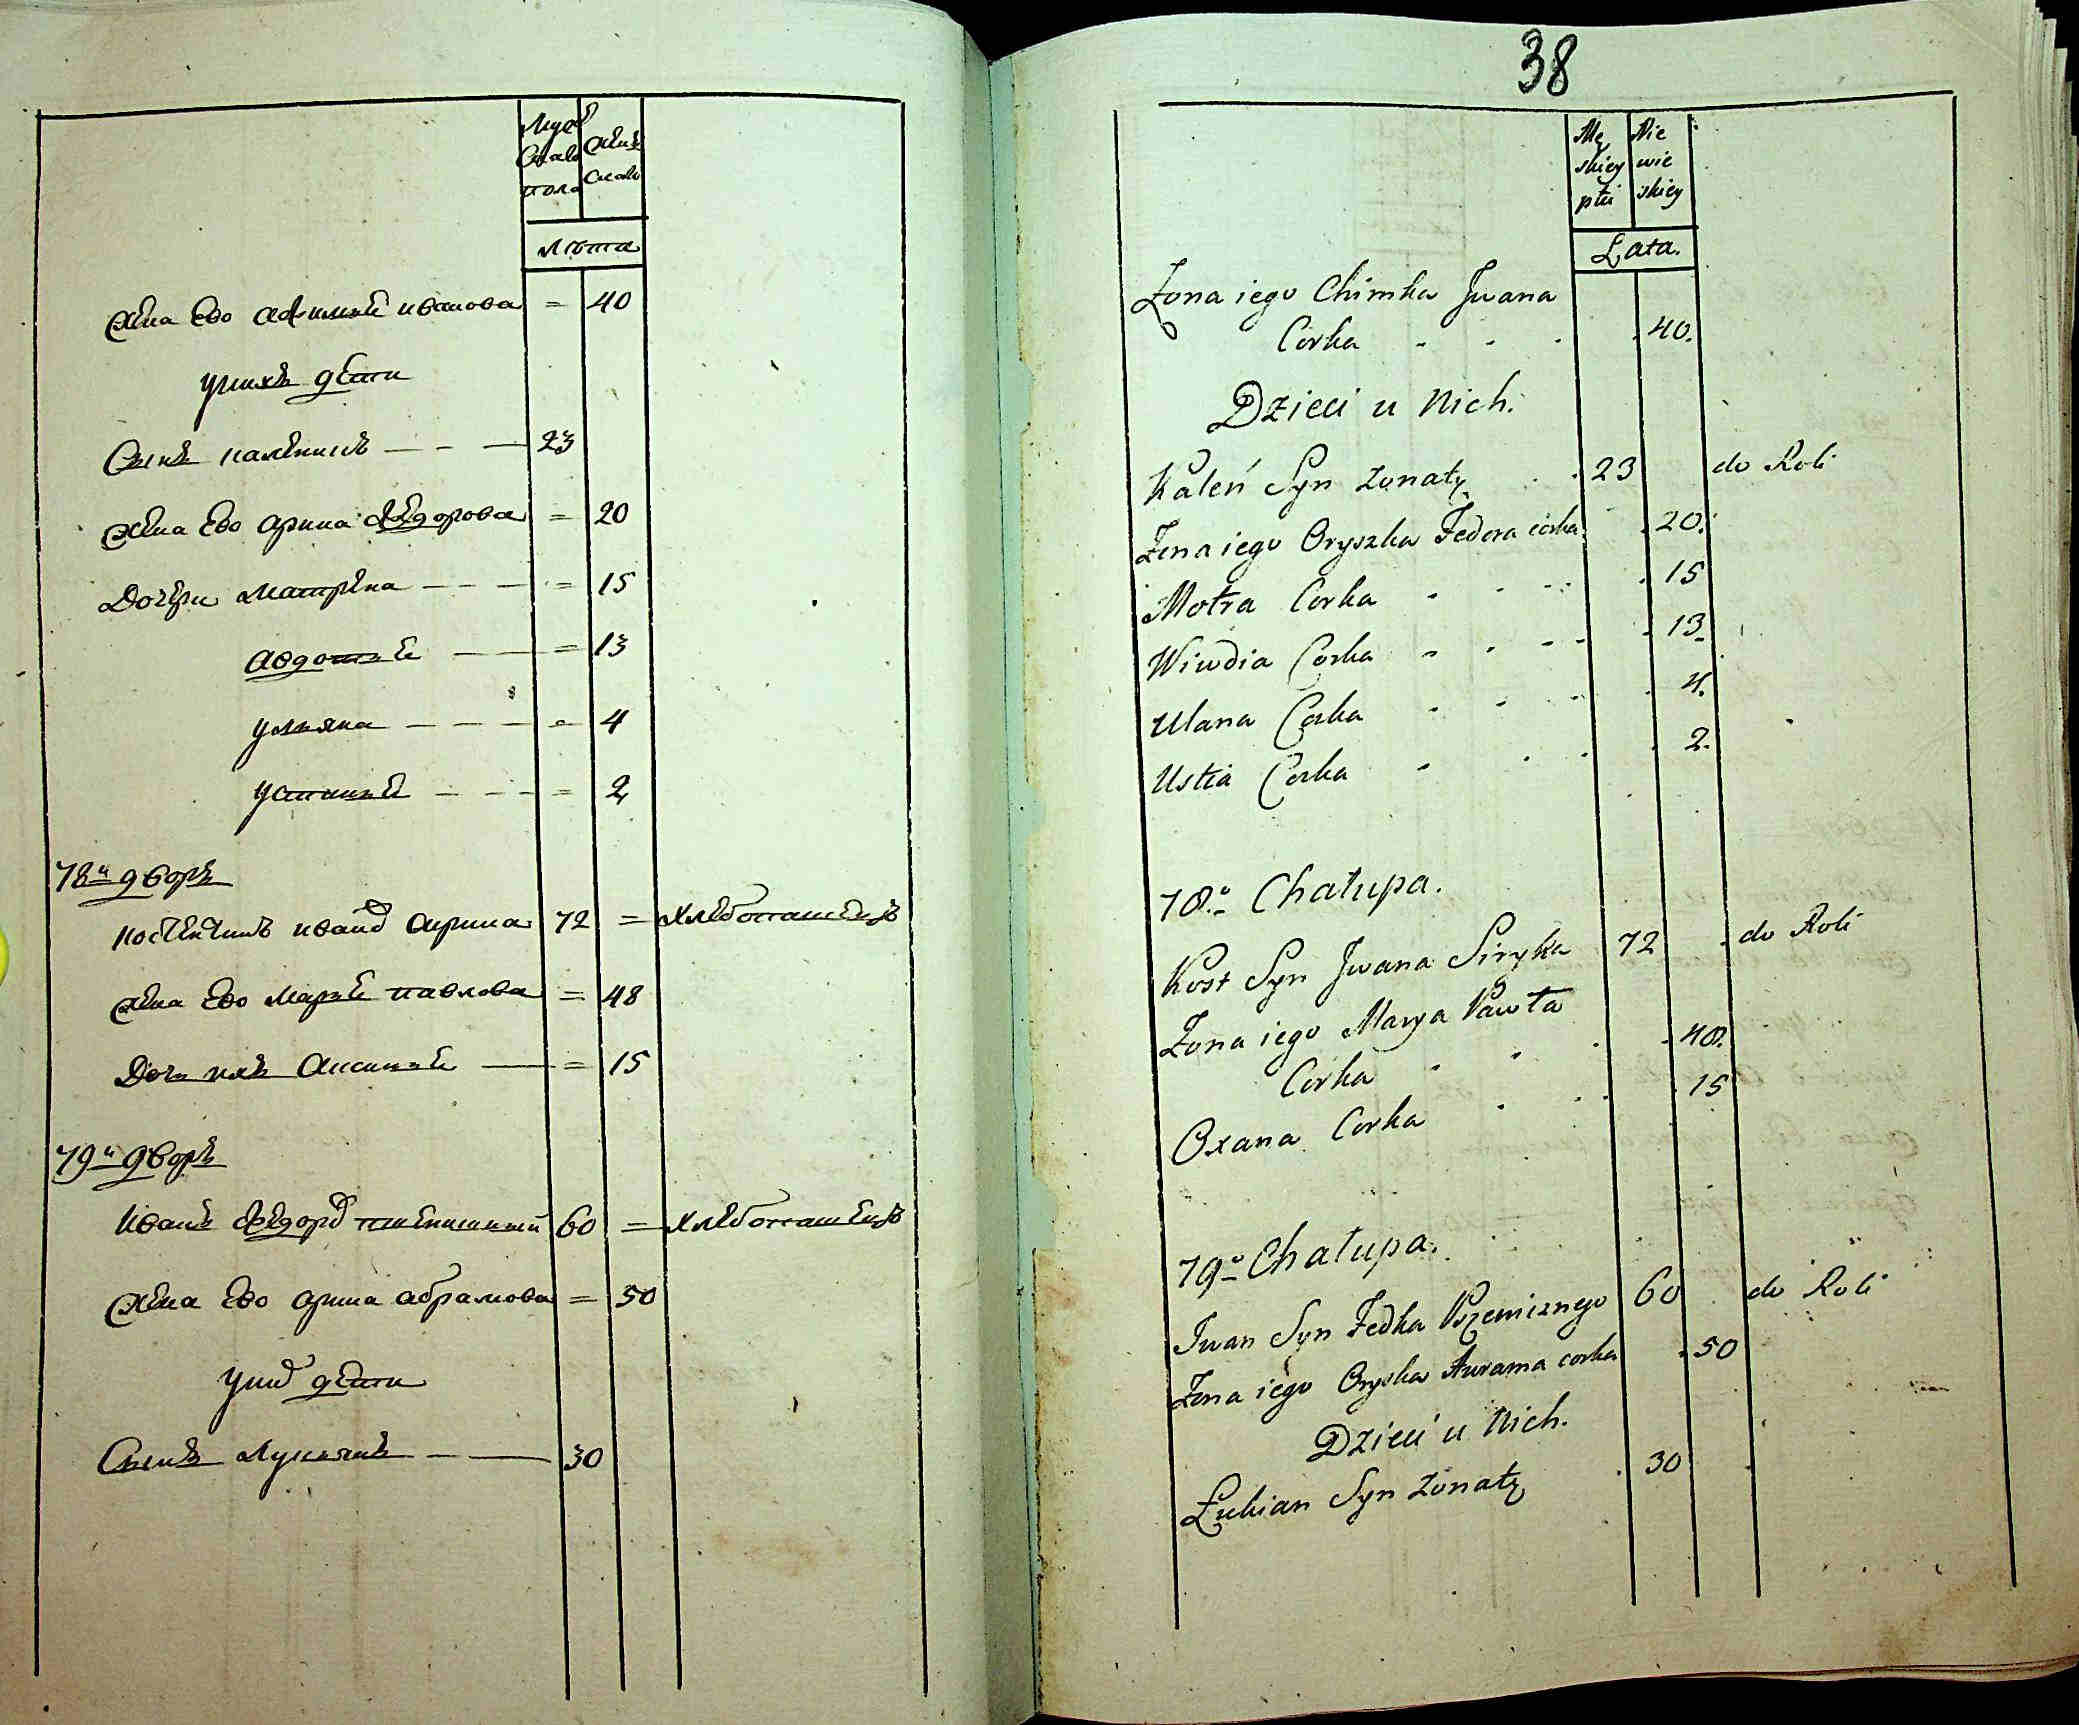 Муж
Скаго
пола
Женъ
скаго
Лѣта
Жена Ево Афимья иванова = 40
у них дети
Сынъ каленикъ — - — 23
Жена Ево арина Федорова = 20
Дочери матрена — — — = 15
авдотья — — = 13
ульяна — — — = 4
устинья — — — = 2
78й дворъ
костентинъ иванов 72 = хлебопашецъ
Жена Ево марья павлова = 48
Дочь их Аксинья — = 15
79й дворъ
Иванъ Федоров пшенишный 60 = хлебопашецъ
Жена Ево арина абрамова = 50
у них дети
Сынъ Лукьянъ - — 30
38
Mę
skiey
płci
Nie
wie
skiey
Lata.
Żona iego Chimka Jwana
Corka - - - 40.
Dzieci u Nich.
Kaleń Syn żonaty . . 23 do Roli
Żona iego Oryszka Fedora córka . 20.
Motra Corka - - - . 15
Wiwdia Corka - - - - 13.
Ulana Corka - - - . 4.
Ustia Corka - - - . 2.
78o Chałupa.
Kost Syn Jwana Siryka 72 . do Roli
Żona iego Marya Pawła
Corka - - - . 48.
Oxana Corka - - - . 15
79o Chałupa.
Jwan Syn Fedka Pszenicznego 60 do Roli
Żona iego Oryska Awrama corka . 50
Dzieci u Nich.
Łukian Syn żonaty . 30